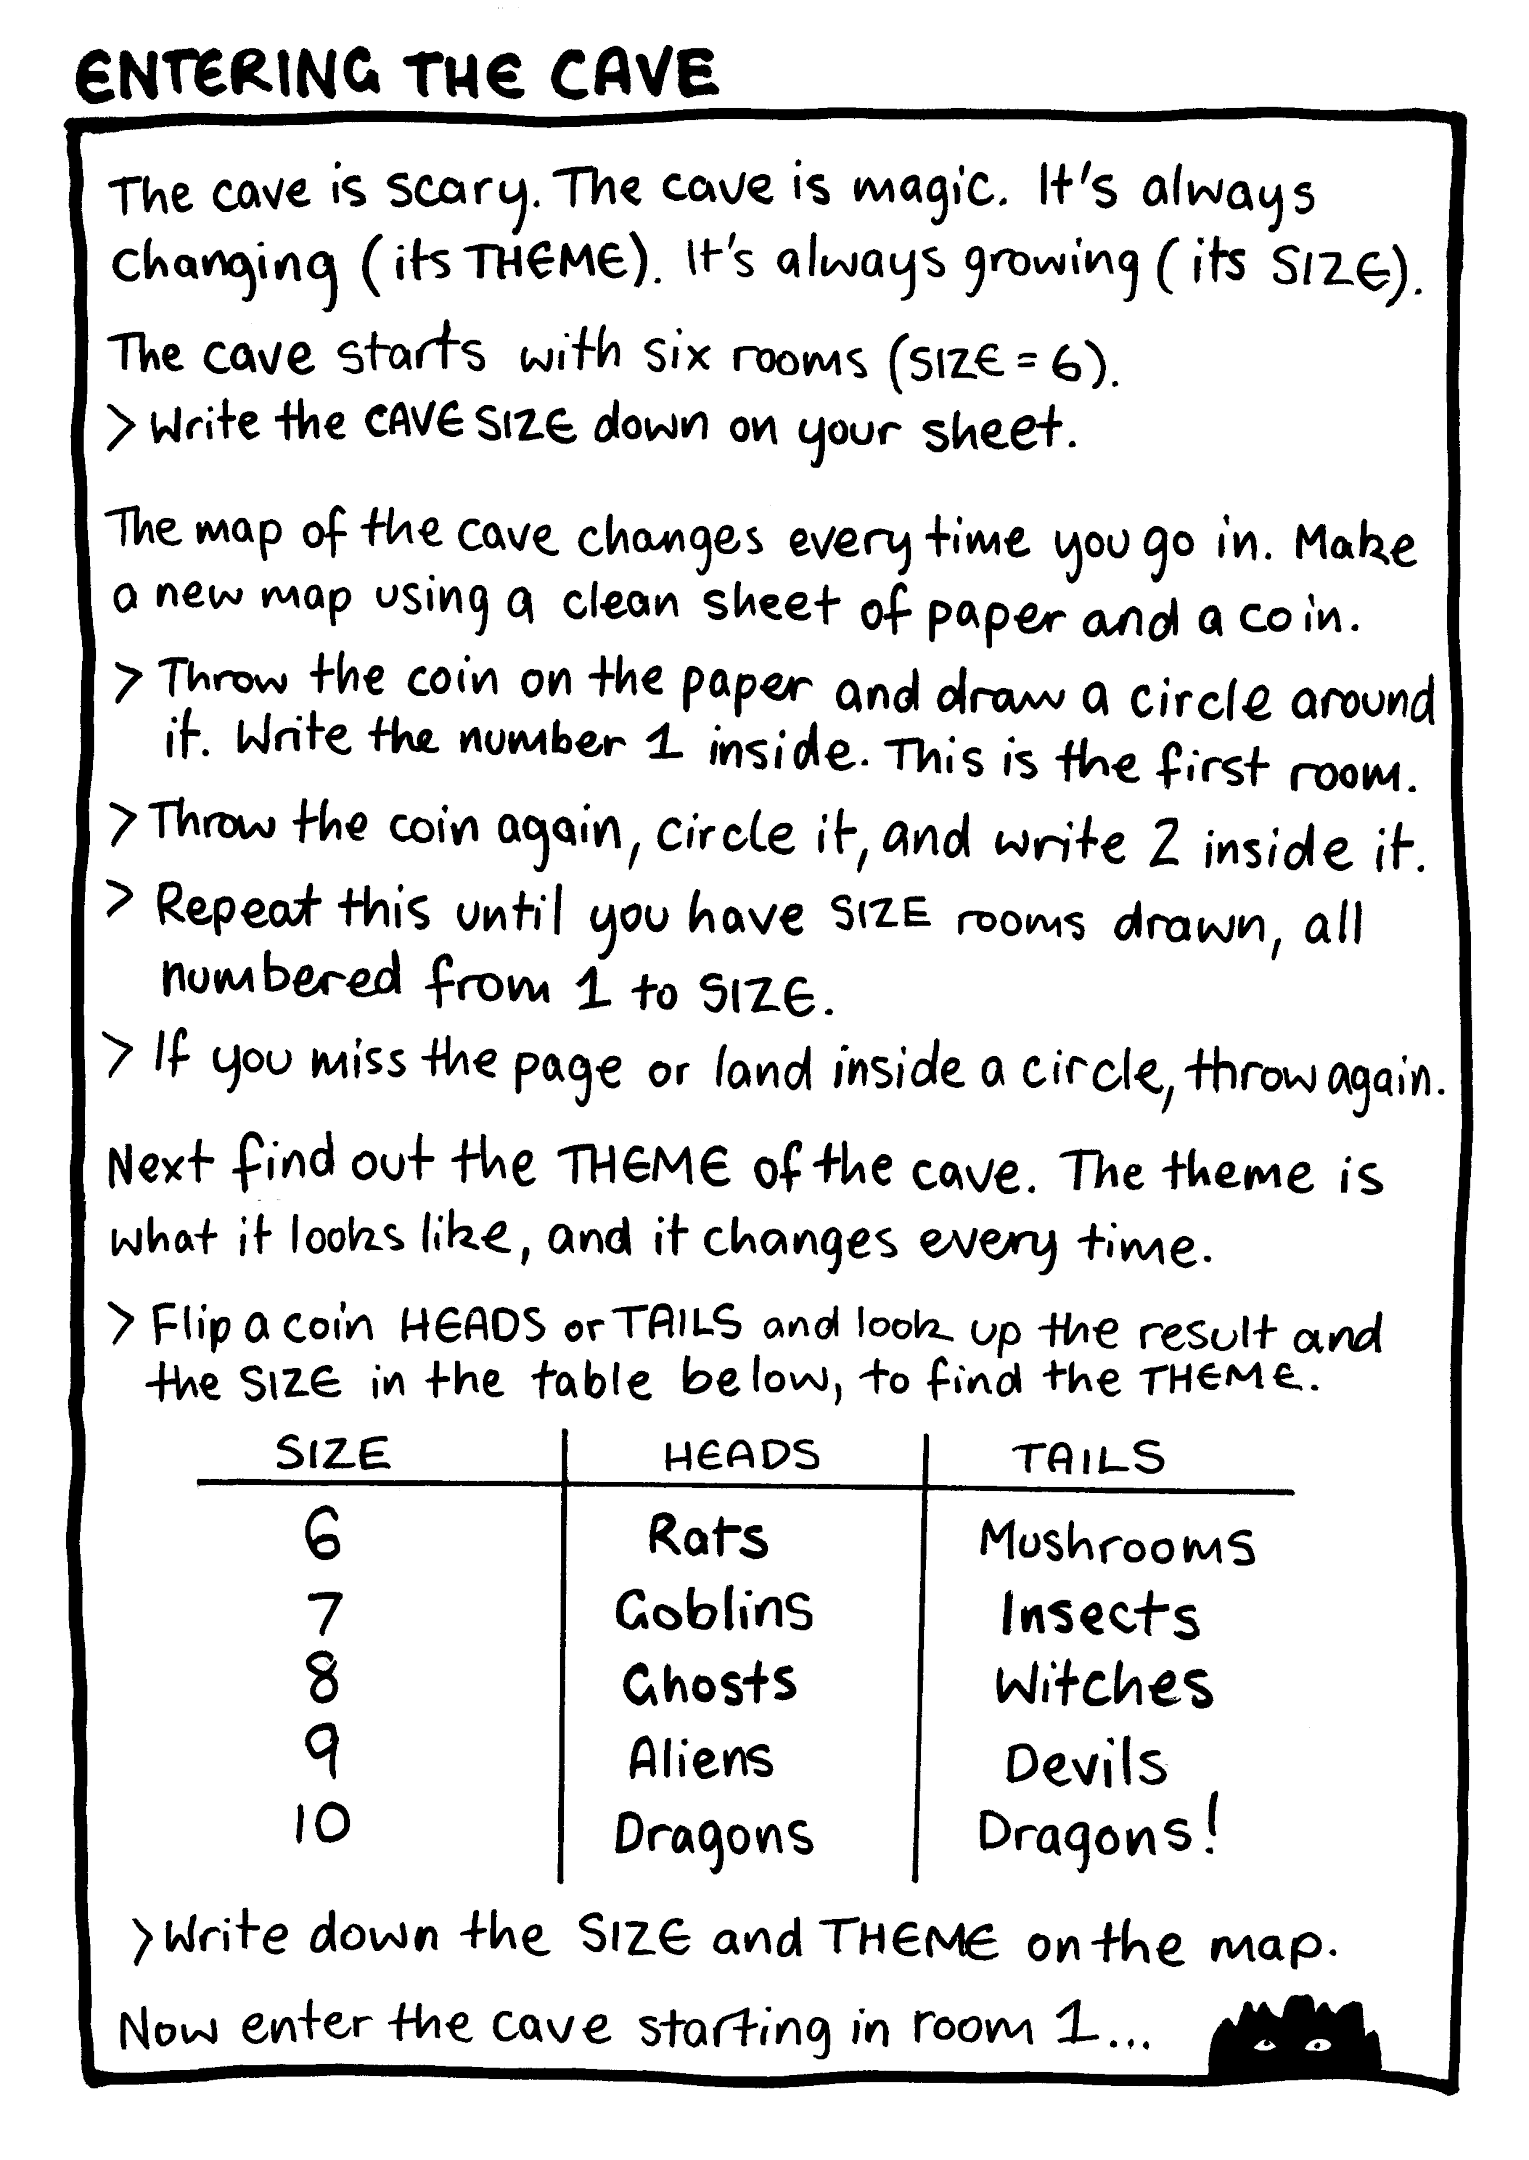 ENTERING THE CAVE
The cave is scary. The cave is magic. It's always
changing (its THEME). It's always growing (its SIZE).
The cave starts with six rooms (SIZE = 6).
> Write the CAVE SIZE down on your sheet.
The map of the cave changes every time you go in. Make
a new map using a clean sheet of paper and a coin.
> Throw the coin on the paper and draw a circle around
it. Write the number 1 inside. This is the first room.
> Throw the coin again, circle it, and write 2 inside it.
> Repeat this until you have SIZE rooms drawn, all
numbered from 1 to SIZE.
> If you miss the page or land inside a circle, throw again.
Next find out the THEME of the cave. The theme is
what it looks like, and it changes every time.
> Flip a coin HEADS or TAILS and look up the result and
the SIZE in the table below, to find the THEME.
SIZE HEADS TAILS
6 Rats Mushrooms
7 Goblins Insects
8 Ghosts Witches
9 Aliens Devils
10 Dragons Dragons!
> Write down the SIZE and THEME on the map.
Now enter the cave starting in room 1...